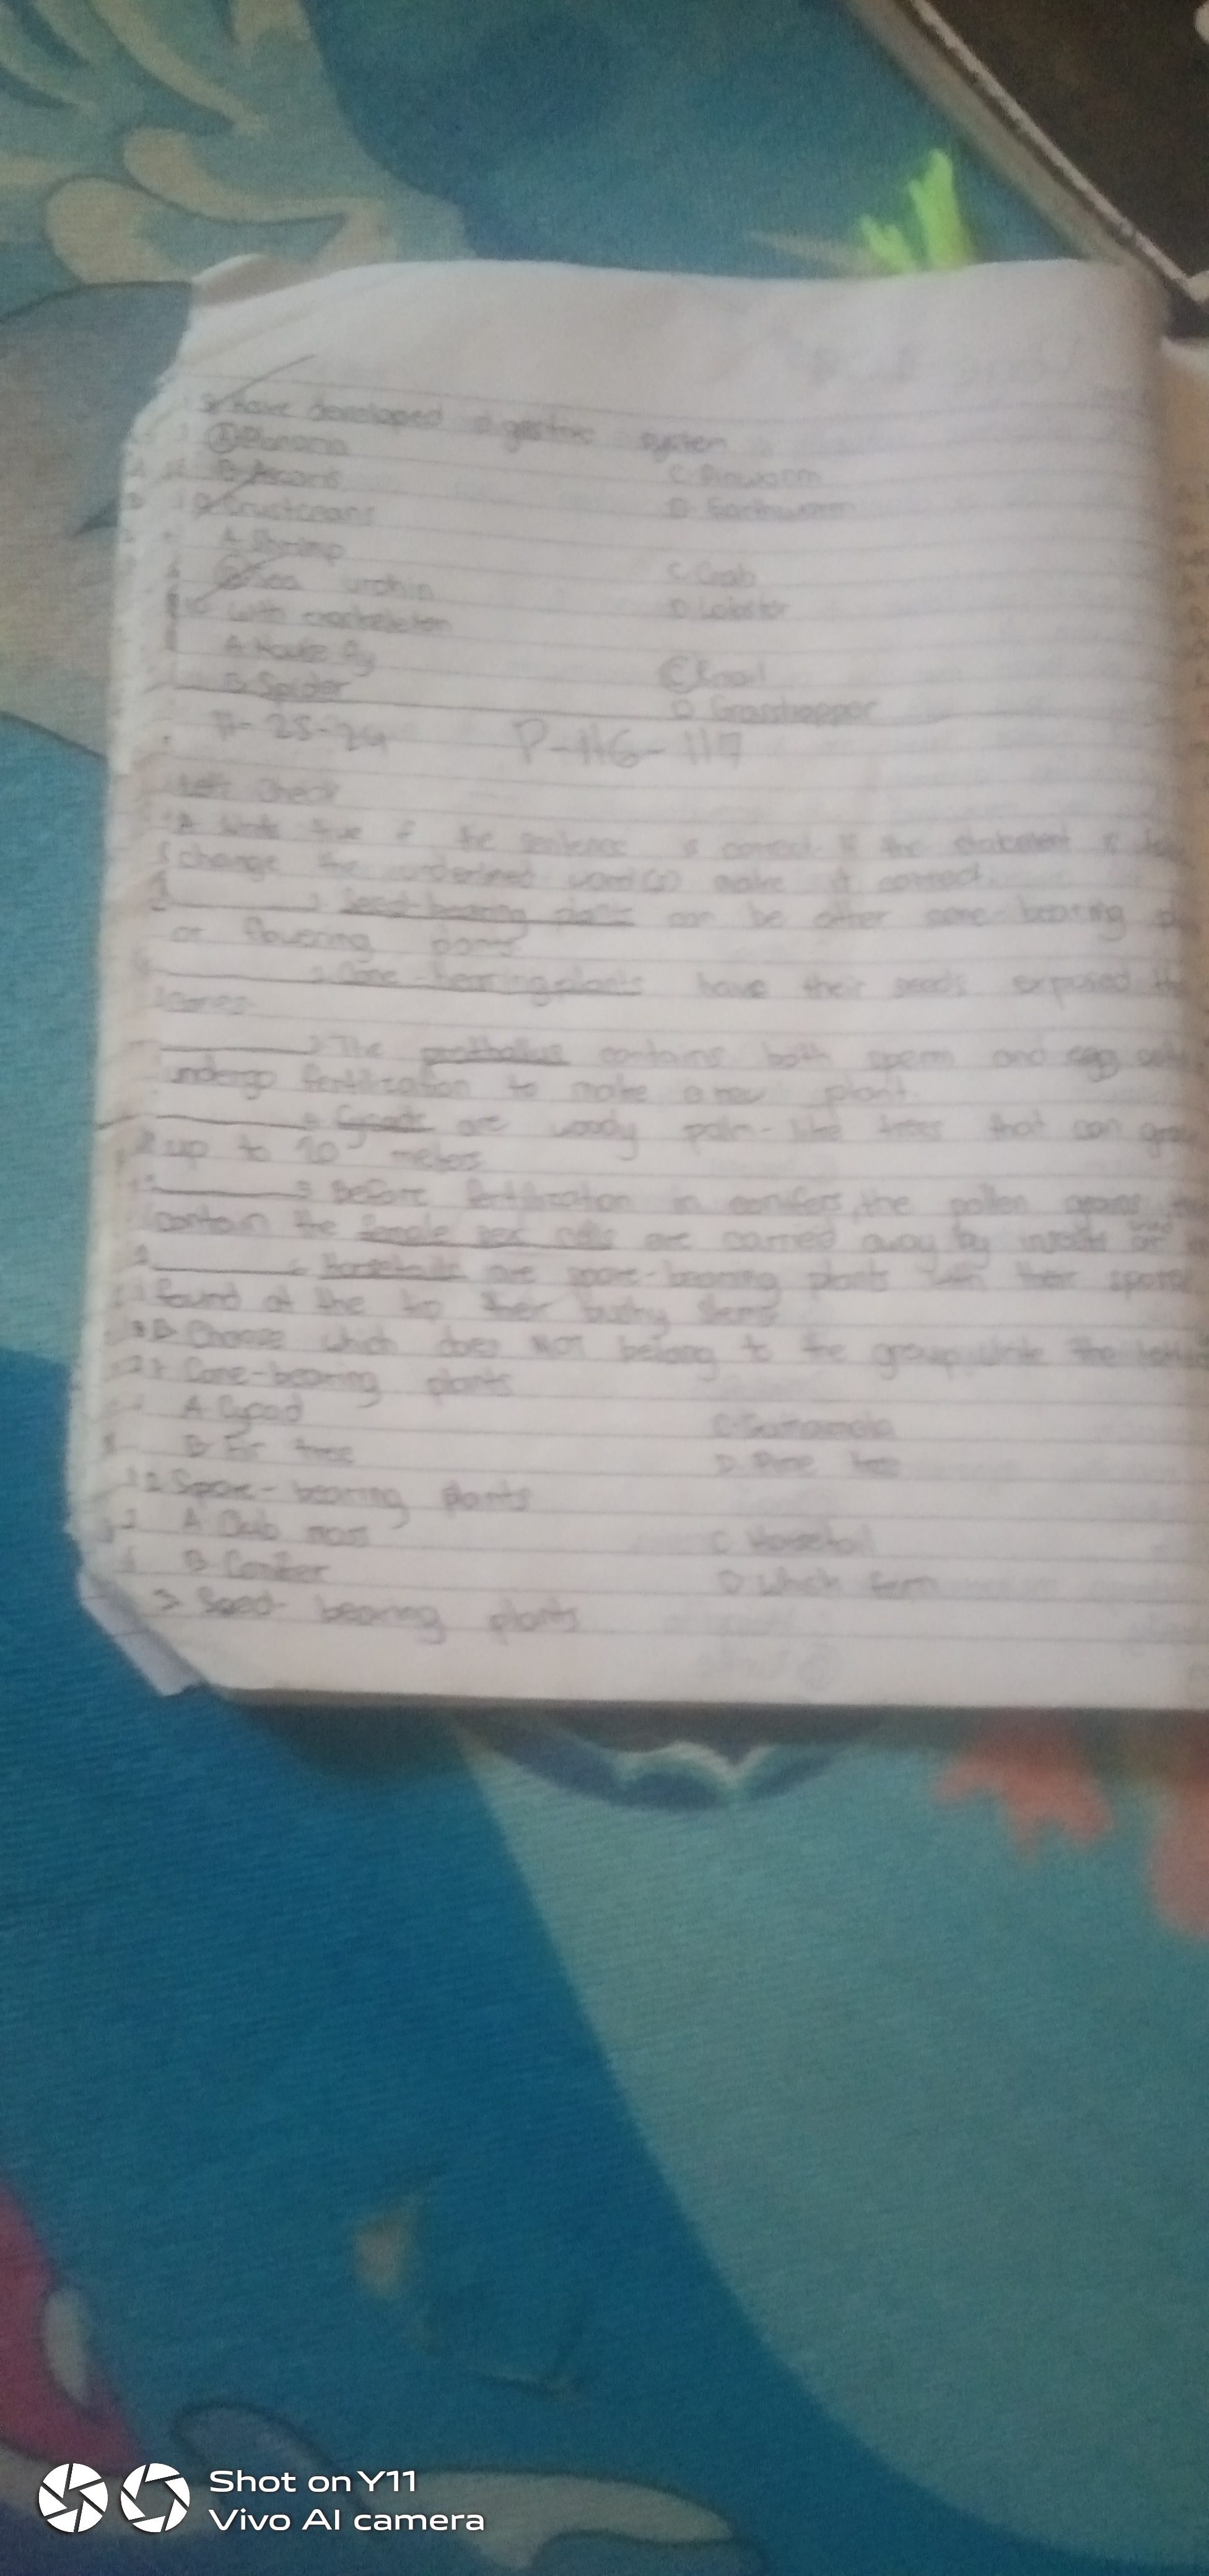 have developed digestive system
A Planaria
B Ascaris
C Pinworm
D Earthworm
Crustceans
A Shrimp
B Sea urchin
C Crab
D Lobster
10 With exoskeleton
A House fly
B Spider
C Snail
D Grasshopper
11-25-24
P-116-117
Let's Check
A Write true if the sentence is correct. If the statement is
change the underlined word(s) make it correct.
1 Seed-bearing plants can be either cone-bearing
or flowering plants
2 Cone-bearing plants have their seeds exposed
cones
3 The prothallus contains both sperm and egg
undergo fertilization to make a new plant.
4 Cycads are woody palm-like trees that can grow
up to 20 meters
5 Before fertilization in conifers, the pollen grains
contain the female sex cells are carried away by insects or wind
6 Horsetails are spore-bearing plants with their spores
found at the tip their bushy stems
B Choose which does NOT belong to the group. Write the
1 Cone-bearing plants
A Cycad
B Fir tree
C Gumamela
D Pine tree
2 Spore-bearing plants
A Club moss
B Conifer
C Horsetail
D Whisk fern
3 Seed-bearing plants
Shot on Y11
Vivo AI camera